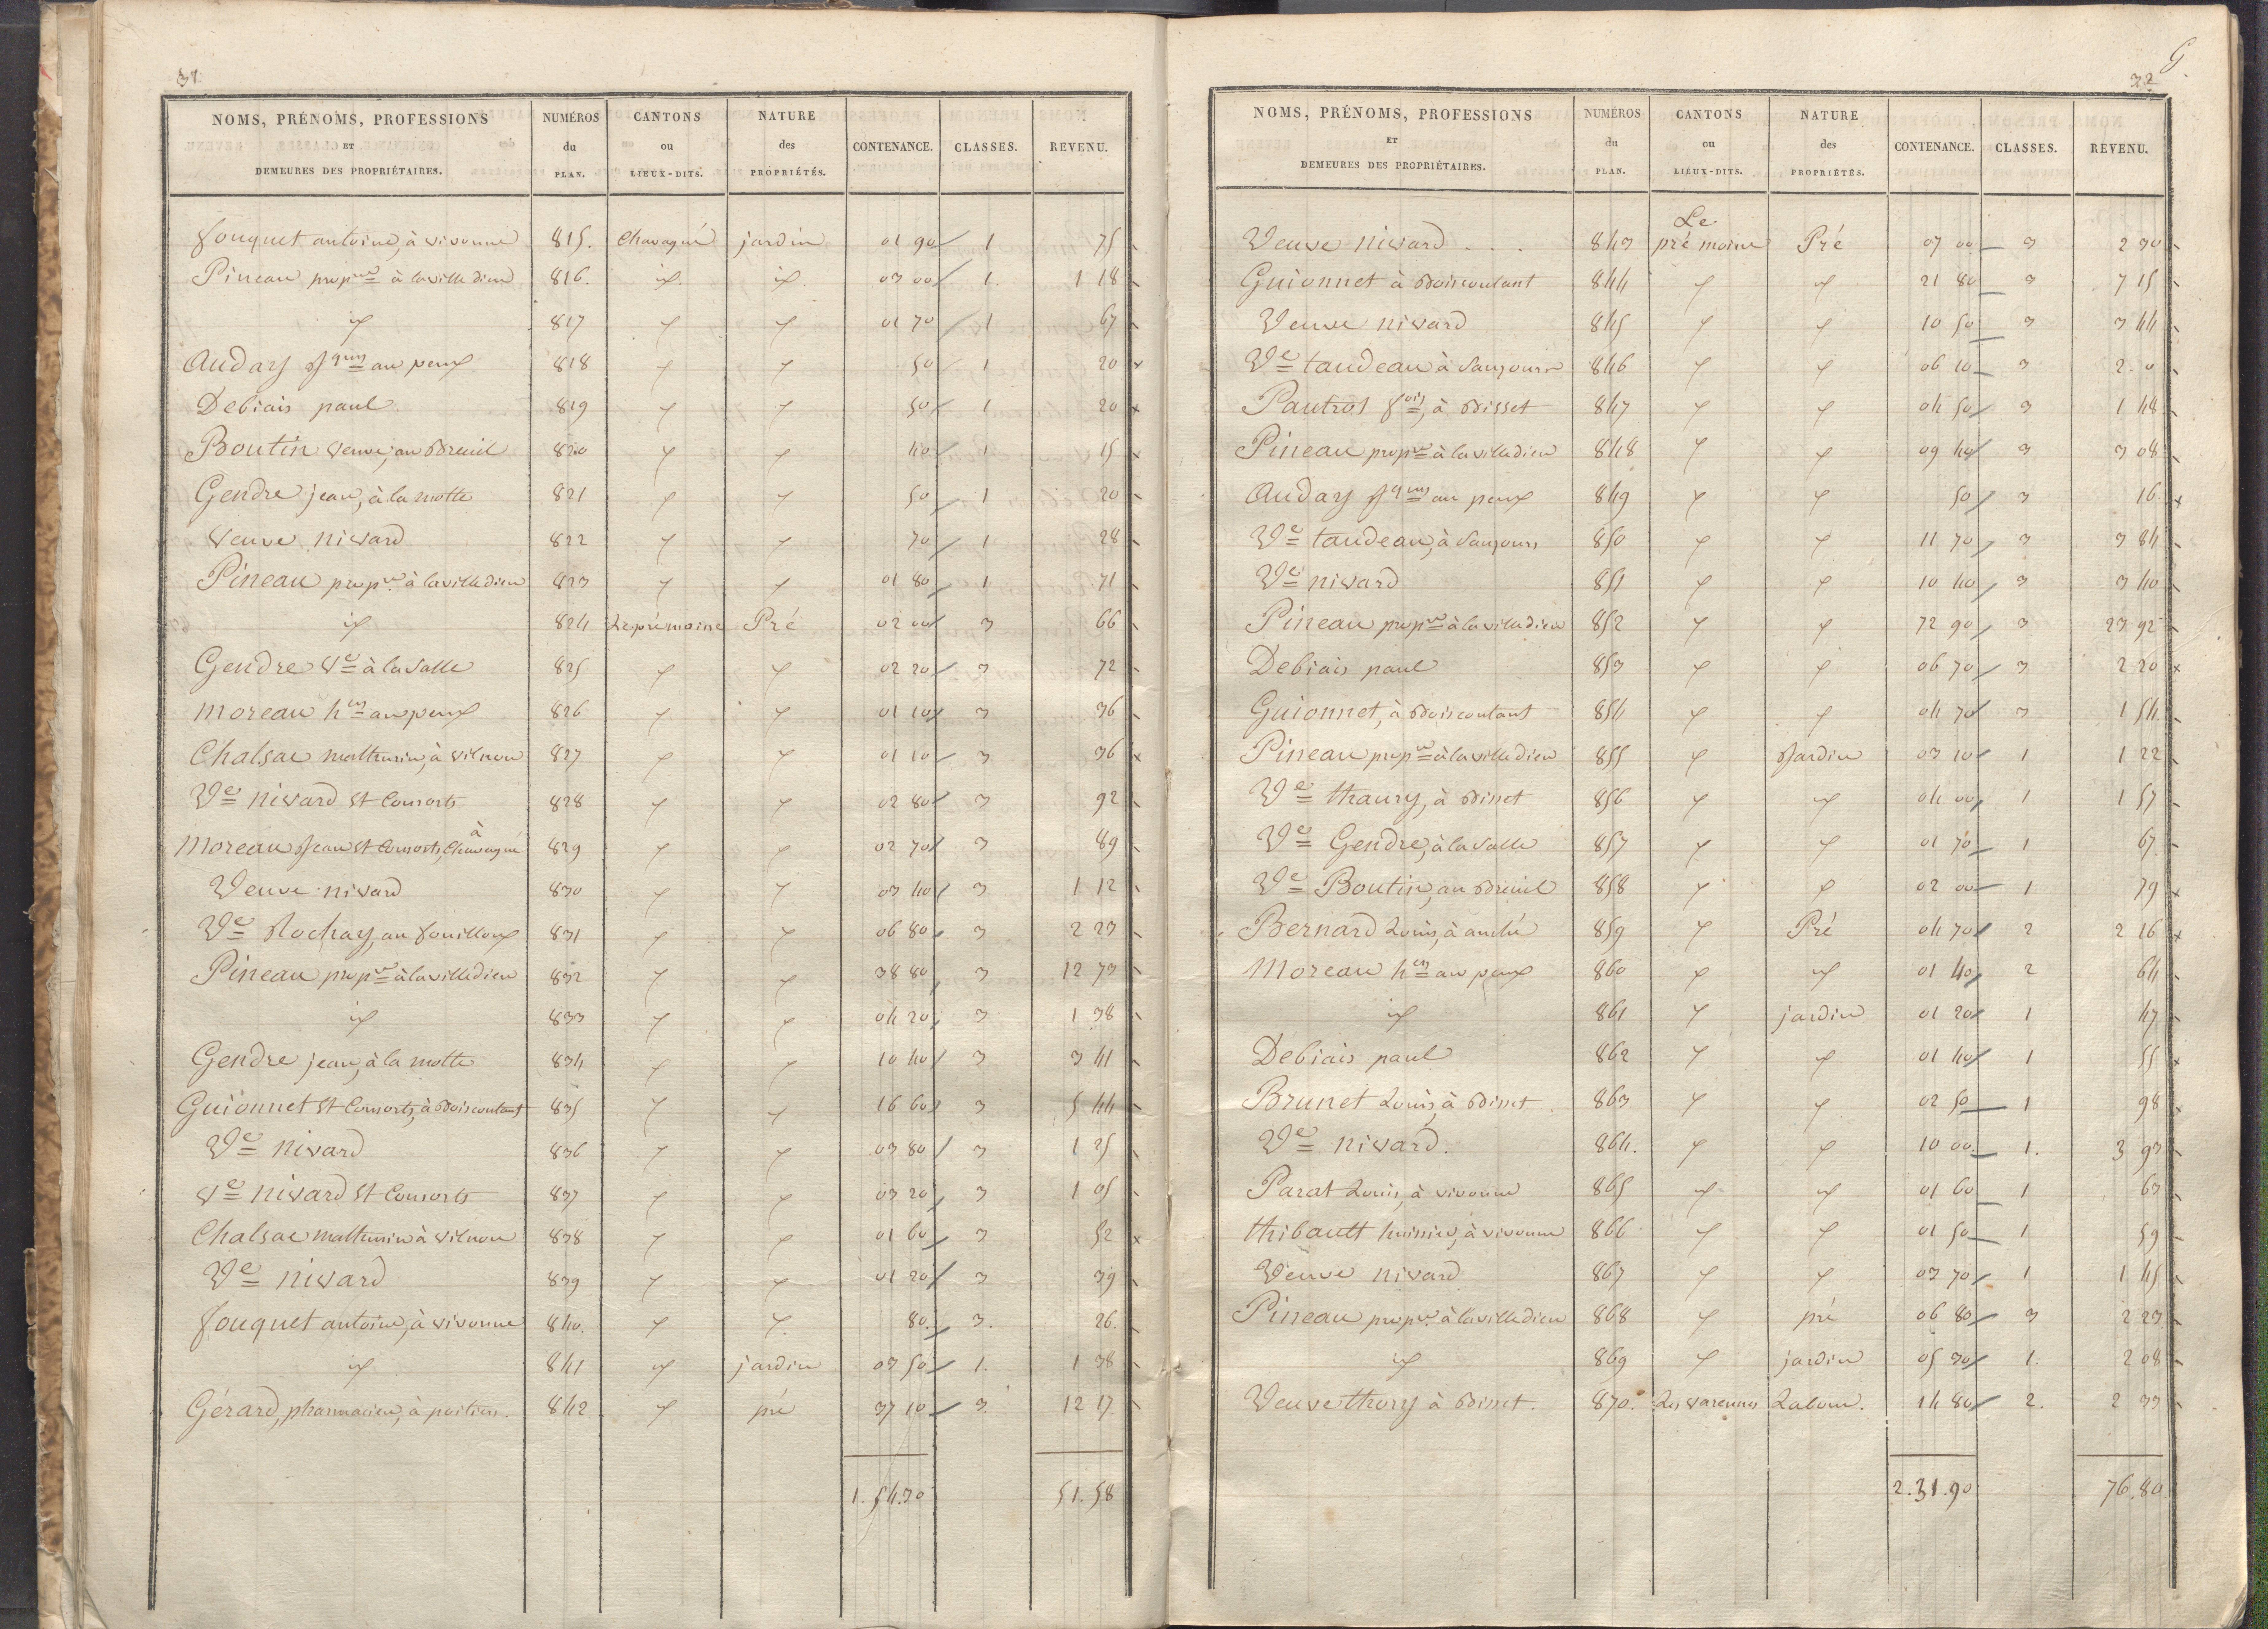 31
NOMS, PRÉNOMS, PROFESSIONS ET DEMEURES DES PROPRIÉTAIRES. NUMÉROS du PLAN. CANTONS ou LIEUX-DITS. NATURE des PROPRIÉTÉS. CONTENANCE. CLASSES. REVENU.
fouquet antoine, à vivonne 815. Chavagné jardin 01 90 1 75
Pineau prop.re à la villedieu 816. id. id. 03 00 1. 1 18
id 817 id id 01 70 1 67
Audary au peux 818 id id 50 1 20
Debiais paul 819 id id 50 1 20
Boutin veuve, au Breuil 820 id id 40 1 15
Gendre jean, à la motte 821 id id 50 1 20
veuve nivard 822 id id 70 1 28
Pineau prop.re à la villedieu 823 id id 01 80 1 71
id 824 Le pré moine Pré 02 00 3 66
Gendre Ve à la Salle 825 id id 02 20 3 72
moreau hers au peux 826 id id 01 10 3 36
Chalsac mathurin, à vilnon 827 id id 01 10 3 36
Ve nivard et Consorts 828 id id 02 80 3 92
moreau Jean et Consorts, à Chavagné 829 id id 02 70 3 89
Veuve nivard 830 id id 03 40 3 1 12
Ve Rochay, au fouilloux 831 id id 06 80 3 2 23
Pineau prop.re à la villedieu 832 id id 38 80 3 12 73
id 833 id id 04 20 3 1 38
Gendre jean, à la motte 834 id id 10 40 3 3 41
Guionnet et Consorts, à Boiscoutant 835 id id 16 60 3 5 44
Ve nivard 836 id id 03 80 3 1 25
ve nivard et Consorts 837 id id 03 20 3 1 05
Chalsac mathurin à vilnon 838 id id 01 60 3 52
Ve nivard 839 id id 01 20 3 39
fouquet antoine, à vivonne 840. id id. 80. 3. 26.
id 841 id jardin 03 50 1. 1 38
Gérard, pharmacien, à poitiers. 842 id pré 37 10 3. 12 17
1.54.30 51.58
G
32
NOMS, PRÉNOMS, PROFESSIONS ET DEMEURES DES PROPRIÉTAIRES. NUMÉROS du PLAN. CANTONS ou LIEUX-DITS. NATURE des PROPRIÉTÉS. CONTENANCE. CLASSES. REVENU.
Veuve nivard . . . 843 Le pré moine Pré 07 00 3 2 30
Guionnet à Boiscoutant 844 id id 21 80 3 7 15
Veuve nivard 845 id id 10 50 3 3 44
Ve taudeau à 846 id id 06 10 3 2. 0
Pautrot fois, à Bisset 847 id id 04 50 3 1 48
Pineau prop.re à la villedieu 848 id id 09 40 3 3 08
Audary au peux 849 id id 50 3 16
Ve taudeau, à 850 id id 11 70 3 3 84
Ve nivard 851 id id 10 40 3 3 40
Pineau prop.re à la villedieu 852 id id 72 90 3 23 92
Debiais paul 853 id id 06 70 3 2 20
Guionnet, à Boiscoutant 854 id id 04 70 3 1 54
Pineau prop.re à la villedieu 855 id Jardin 03 10 1 1 22
Ve thaury, à Bisset 856 id id 04 00 1 1 57
Ve Gendre, à la Salle 857 id id 01 70 1 67
Ve Boutin, au Breuil 858 id id 02 00 1 79
Bernard Louis, à anché 859 id Pré 04 70 2 2 16
Moreau hers au peux 860 id id 01 40 2 64
id 861 id jardin 01 20 1 47
Debiais paul 862 id id 01 40 1 55
Brunet Louis, à Bisset 863 id id 02 50 1 98
Ve nivard. 864. id id 10 00 1. 3 93
Parat Louis, à vivonne 865 id id 01 60 1 63
thibault huissier, à vivonne 866 id id 01 50 1 59
Veuve nivard 867 id id 03 70 1 1 45
Pineau prop.re à la villedieu 868 id pré 06 80 3 2 23
id 869 id jardin 05 30 1. 2 08
Veuve thory à Bisset. 870. Les varennes Labour. 14 80 2. 2 33
2.31.90 76.80